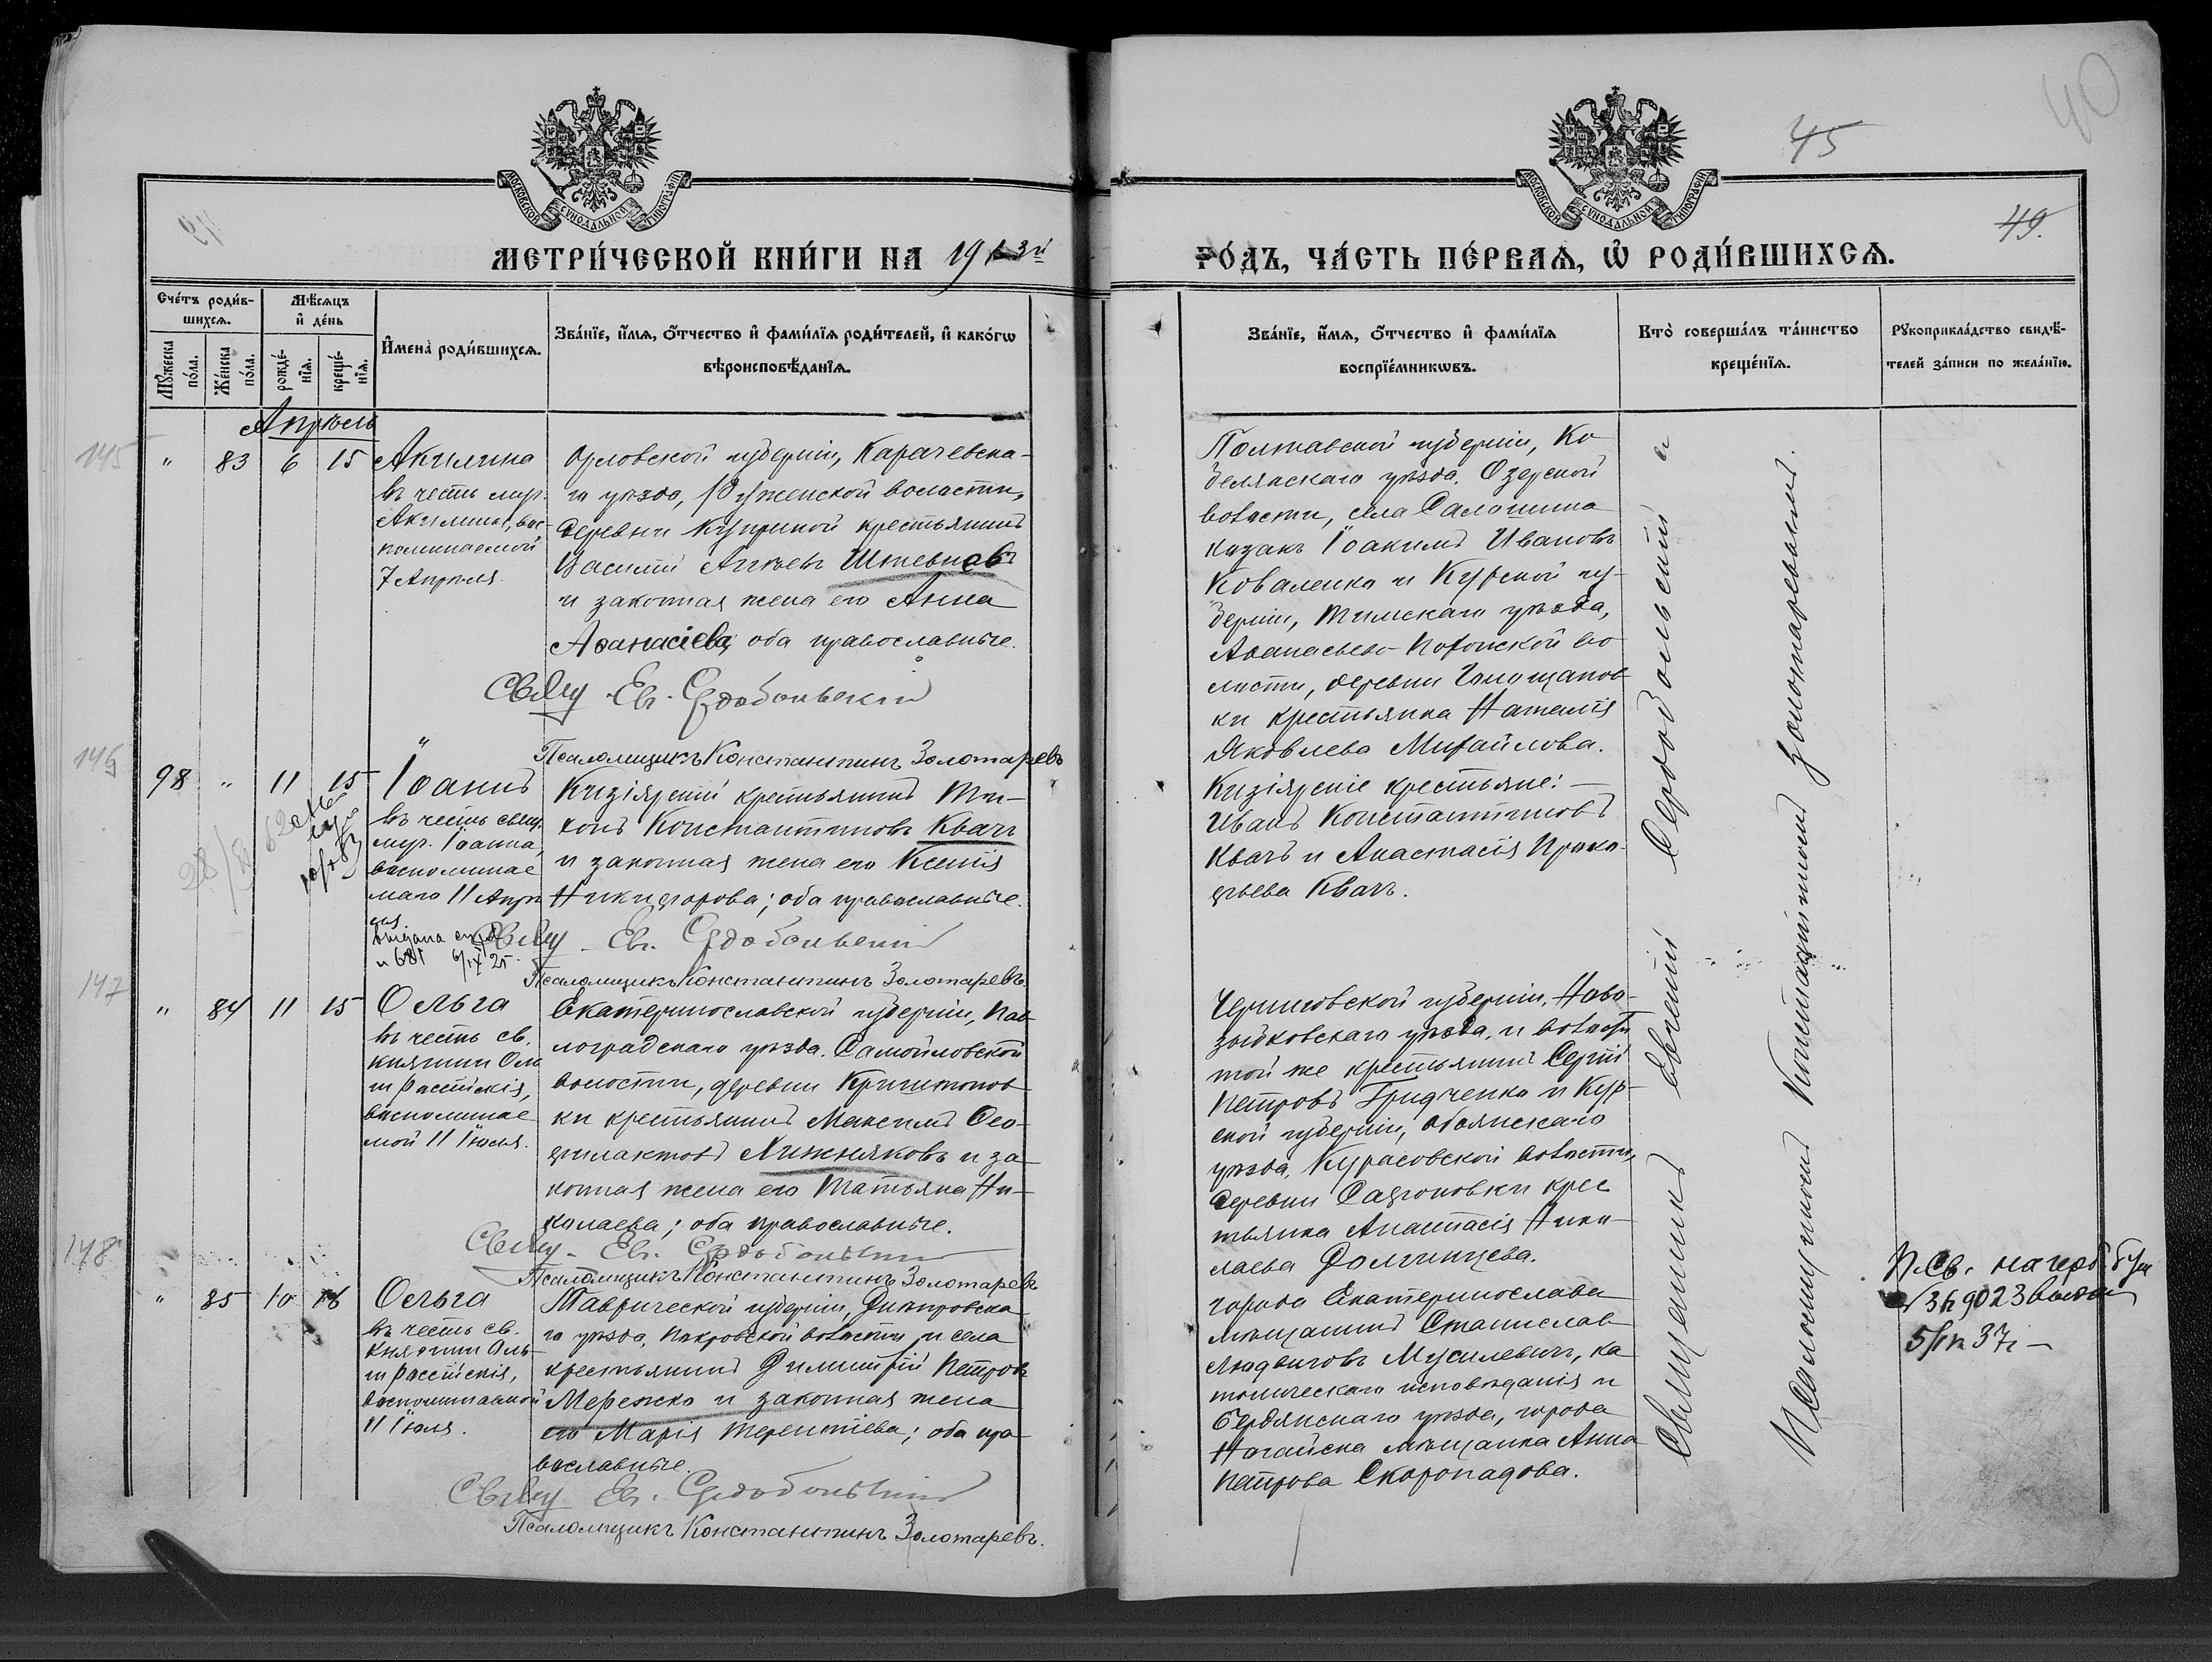 45
40
49.
МОСКОВСКОЙ СѴНОДАЛЬНОЙ ТИПОГРАФІИ
МОСКОВСКОЙ СѴНОДАЛЬНОЙ ТИПОГРАФІИ
МЕТРИ́ЧЕСКОЙ КНИ́ГИ НА 1913й
ГО́ДЪ, ЧА́СТЬ ПЕ́РВАѦ, Ѽ РОДИ́ВШИХСѦ.
Сче́тъ роди́вшихсѧ.
Мꙋ́жеска по́ла.
Же́нска по́ла.
Мѣ́сѧцъ и҆ де́нь
рожде́нїѧ.
креще́нїѧ.
И҆мена̀ роди́вшихсѧ.
Зва́нїе, и҆́мѧ, ѻ҆́тчество и҆ фами́лїѧ роди́телей, и҆ како́гѡ
вѣроисповѣ́данїѧ.
Зва́нїе, и҆́мѧ, ѻ҆́тчество и҆ фами́лїѧ
воспрїе́мникѡвъ.
Кто̀ соверша́лъ та́инство
креще́нїѧ.
Рꙋкоприкла́дство свидѣ́-
телей за́писи по жела́нїю.
Апрѣль
145
" 83 6 15
Акилина
въ честь мур.
Акилины, вос-
поминаемой
7 Апрѣля.
Орловской губерніи, Карачевска-
го уѣзда, Руженской волости,
деревни Куприной крестьянинъ
Василій Алѣевъ
и законная жена его Анна
Аѳанасіева; оба православные.
Свящ. Ев. Средобольскій
Псаломщикъ Константинъ Золотаревъ
Полтавской губерніи, Ко-
белякскаго уѣзда, Озерской
волости, села Салошина
казакъ Іоакимъ Ивановъ
Коваленко и Курской гу-
берніи, Тимскаго уѣзда,
Аѳанасьево-Пахонской во-
лости, деревни
ки крестьянка Наталія
Яковлева Михайлова.
146
98 " 11 15
Іоаннъ
въ честь свящ.
мур. Іоанна,
воспоминае
маго 11 Апрѣ
ля
Кизіярскій крестьянинъ Ти-
хонъ Константиновъ Квачъ
и законная жена его Ксенія
Никифорова; оба православные.
Свящ. Ев. Средобольскій
Псаломщикъ Константинъ Золотаревъ.
Кизіярскіе крестьяне:
Иванъ Константиновъ
Квачъ и Анастасія Проко-
фьева Квачъ.
147
" 84 11 15
Ольга
въ честь св.
княгини Оль
ги Россійскія,
воспоминае
мой 11 Іюля.
Екатеринославской губерніи, Пав-
лоградскаго уѣзда, Самойловской
волости, деревни
ки крестьянинъ Максимъ Ѳео-
филактовъ Лижняковъ и за-
конная жена его Татьяна Ни-
колаева; оба православные.
Свящ. Ев. Средобольскій
Псаломщикъ Константинъ Золотаревъ
Черниговской губерніи, Ново-
зыбковскаго уѣзда, и волости
той же крестьянинъ Сергій
Петровъ Гридченко и Кур-
ской губерніи, Обоянскаго
уѣзда, Курасовской волости,
деревни Сафоновки крес
тьянка Анастасія Нико-
лаева Долгинцева.
148
" 85 10 16
Ольга
въ честь св.
княгини Оль-
ги Россійскія,
воспоминаемой
11 Іюля.
Таврической губерніи, Днѣпровска-
го уѣзда, Покровской волости и села
крестьянинъ Димитрій Петровъ
Мережко и законная жена
его Марія Терентіева; оба пра-
вославные.
Свящ. Ев. Средобольскій
Псаломщикъ Константинъ Золотаревъ.
города Екатеринослава
мѣщанинъ Станиславъ
Людвиговъ Мусилевичъ, ка-
толическаго исповѣданія и
Бердянскаго уѣзда, города
Ногайска мѣщанка Анна
Петрова Скоропадова.
Священникъ Евгеній Средобольскій и
Псаломщикъ Константинъ Золотаревъ.